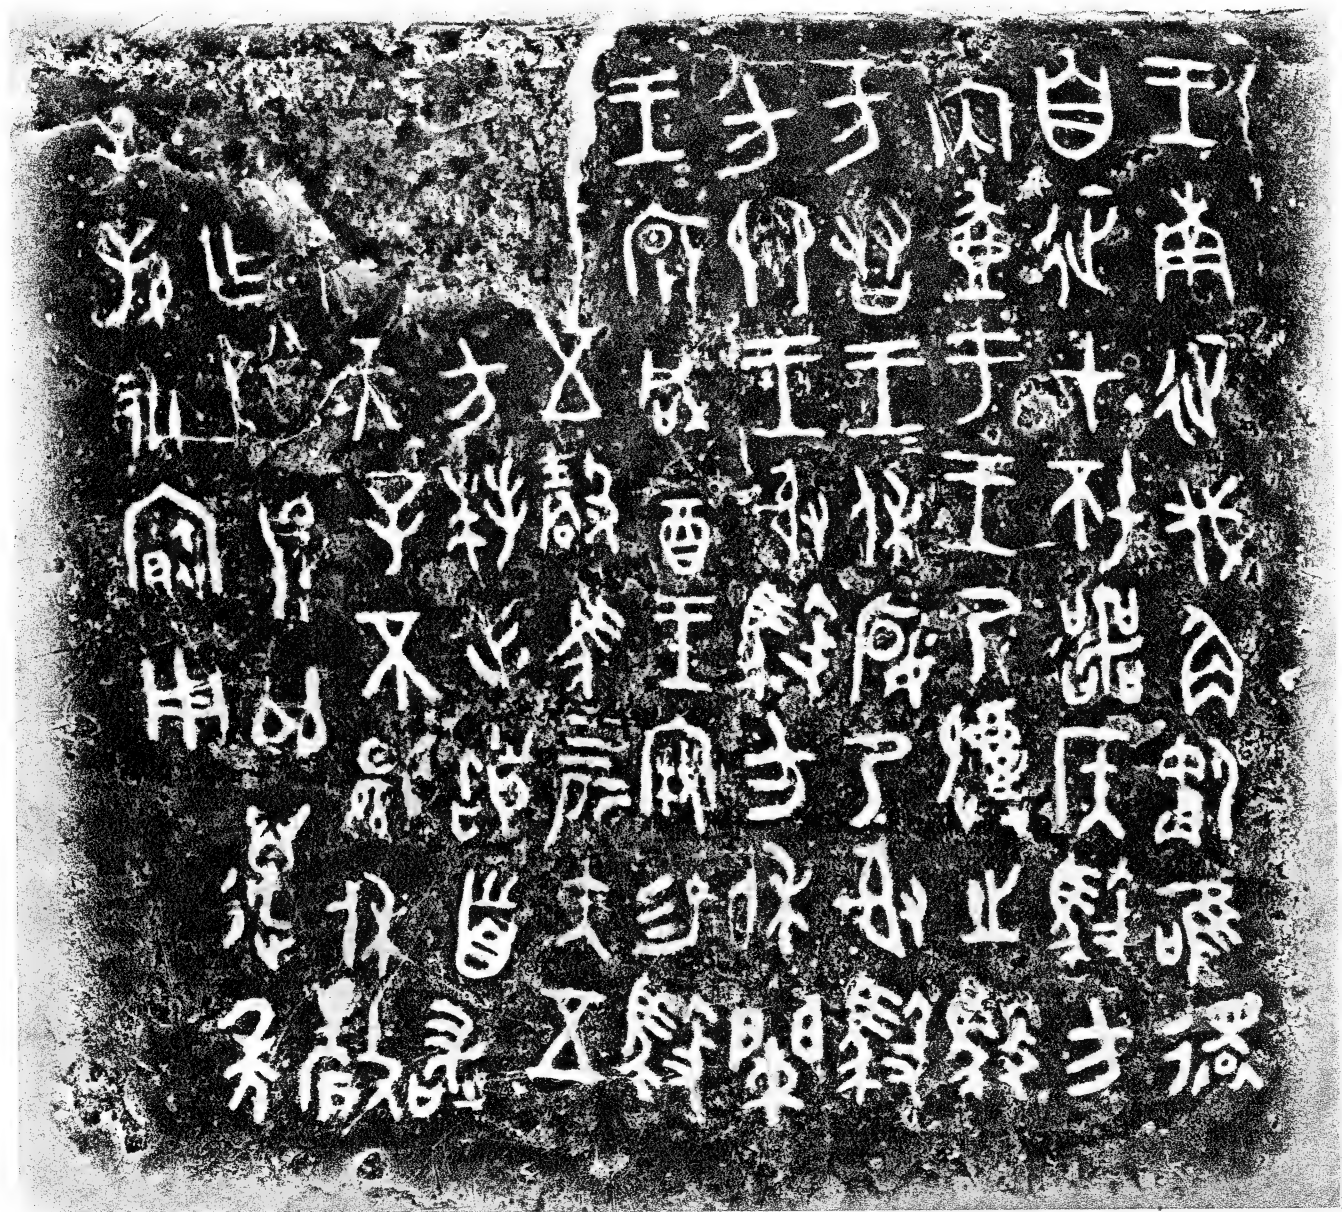 王南征伐角僪唯還
自征才坏噩侯馭方
内壺于王乃祼之馭
方友王王休匽乃射馭
方卿王射馭方休闌
王宴咸酓王寴易馭
五瑴馬四匹矢五
方拜手稽首敢
天子不顯休釐
乍尊鼎其邁年
子孫永寶用